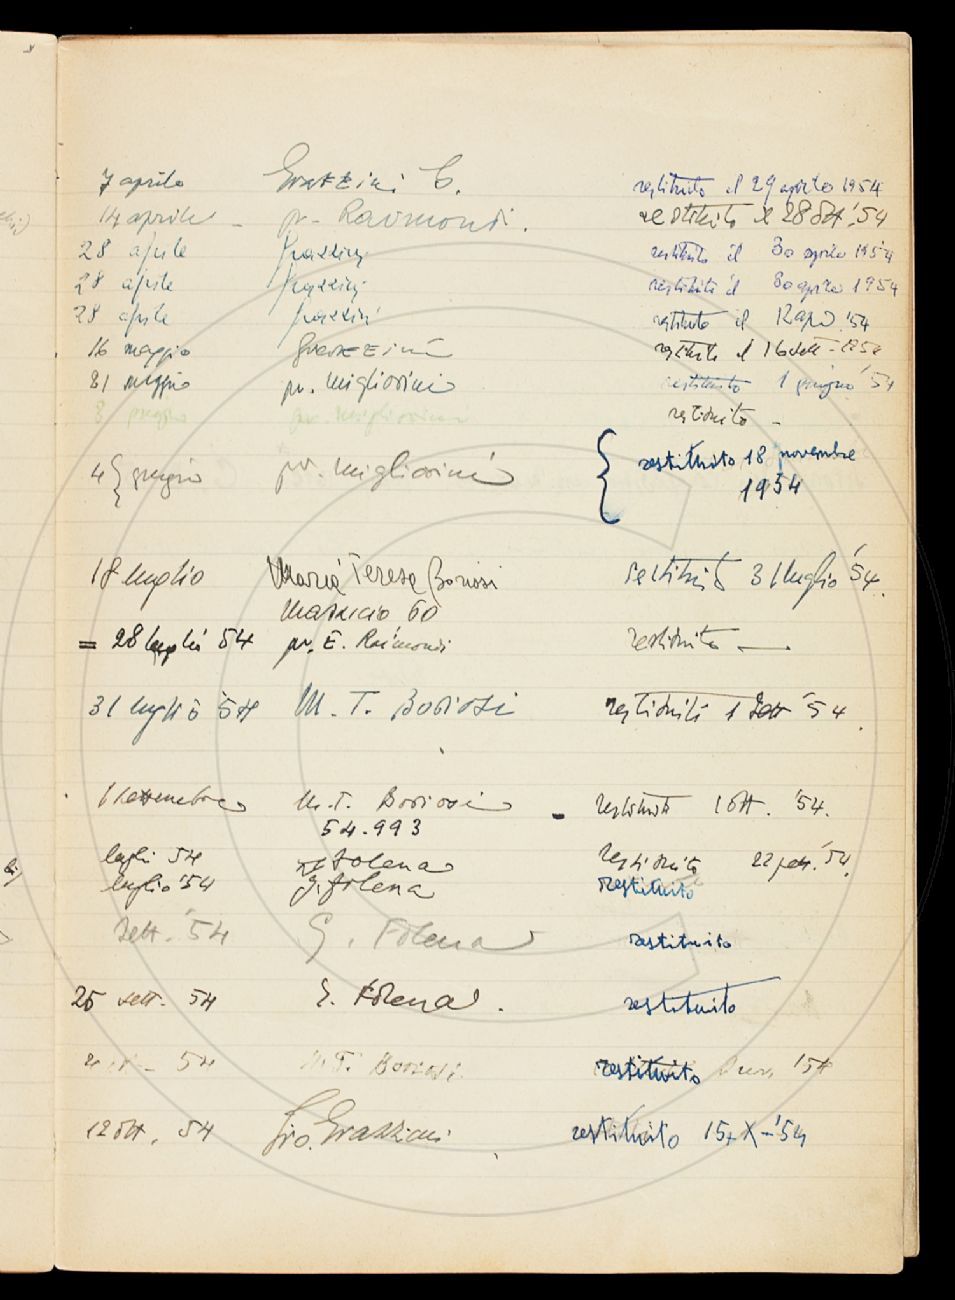 7 aprile Grazzini G. restituito il 29 aprile 1954
14 aprile - pr. Raimondi. restituito il 28 Ott. '54
28 aprile Grazzini restituito il 30 aprile 1954
28 aprile Grazzini restituito il 30 aprile 1954
28 aprile Grazzini restituito il '54
16 maggio Grazzini restituito il 16 sett - 1954
31 maggio pr. Migliorini restituito 1 giugno '54
8 giugno pr. Migliorini restituito -
4 { giugno pr. Migliorini { restituito 18 novembre
1954
18 luglio Maria Teresa restituito 31 luglio '54.
60
= 28 luglio 54 pr. E. Raimondi restituito —
31 luglio '54 M. T. restituito 1 Sett '54.
1 settembre M. T. - restituito 1 Ott. '54.
54.993
luglio 54 Folena restituito 22 sett. '54.
luglio '54 G. Folena restituito
Sett. '54 G. Folena restituito
25 sett. 54 G. Folena. restituito
54 M. T. restituito '54
12 Ott. 54 Gio. Grazzini restituito 15-X-'54